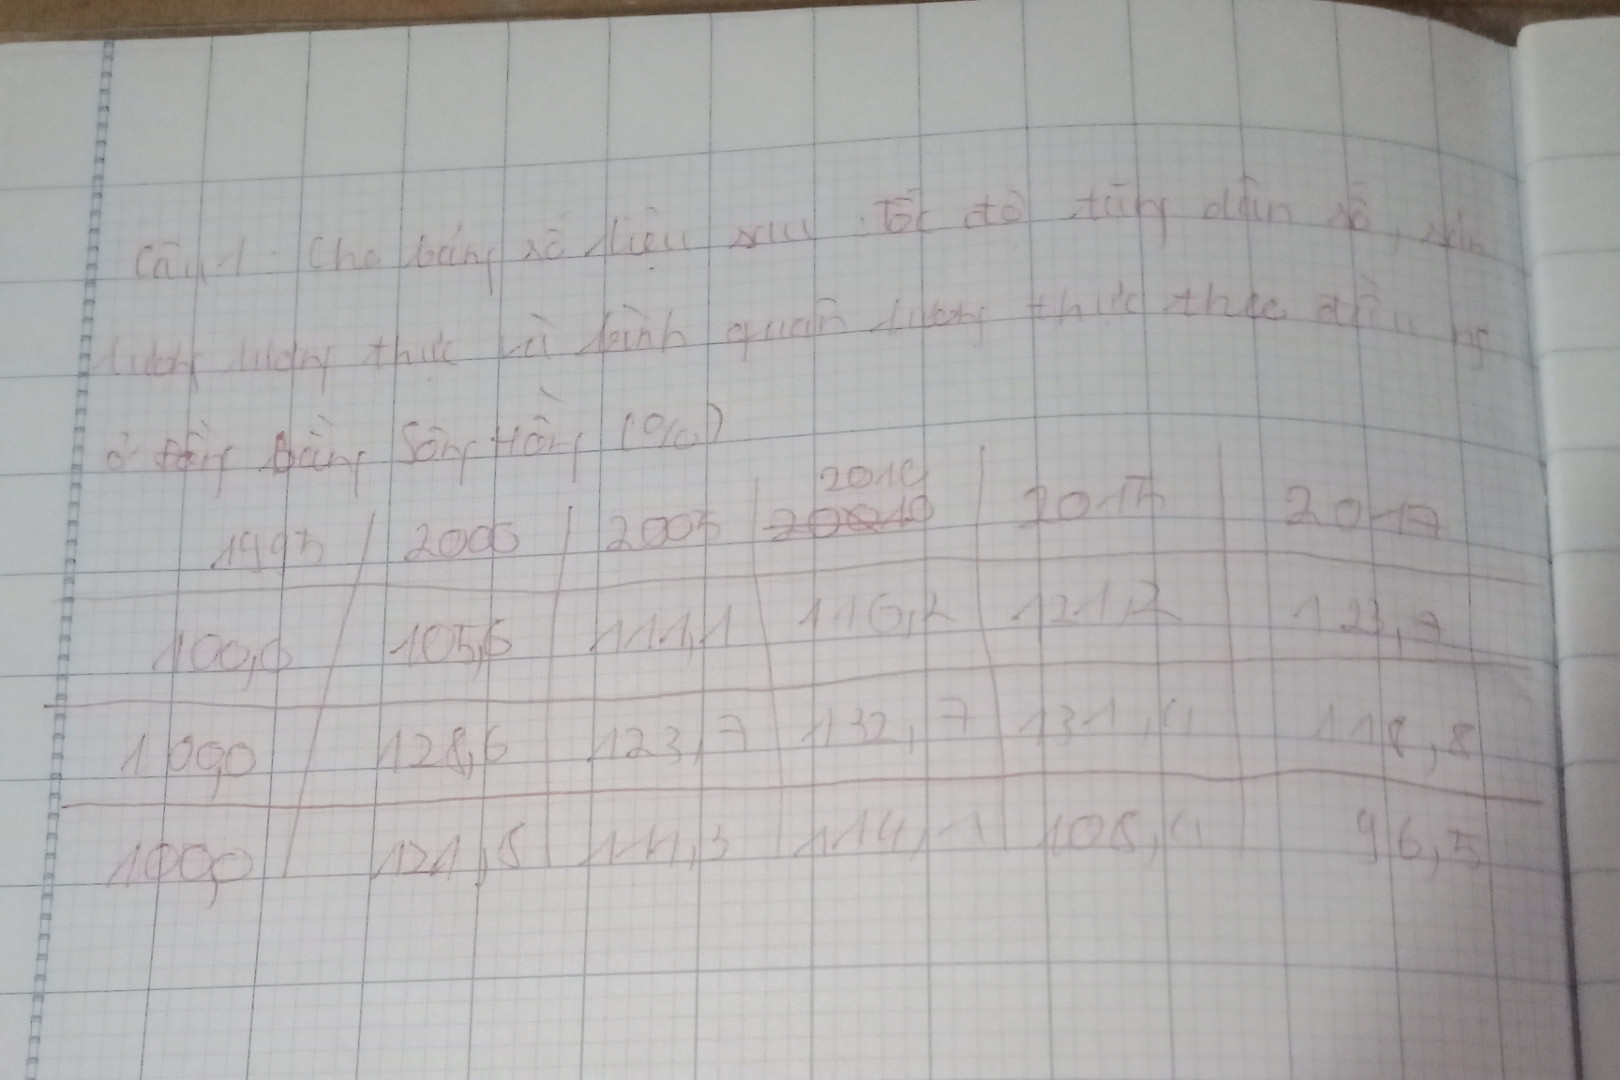 Câu 1. Cho bảng số liệu sau Tốc độ tăng dân số, sản
lượng lương thực và bình quân lương thực theo đầu ng
ở Đồng Bằng Sông Hồng (%)
1995 2000 2005 2010 2015 2017
100,0 105,6 111,1 116,2 121,2 123,7
100,0 128,6 123,7 132,7 131,4 118,8
100,0 121,8 111,3 114,1 108,4 96,5